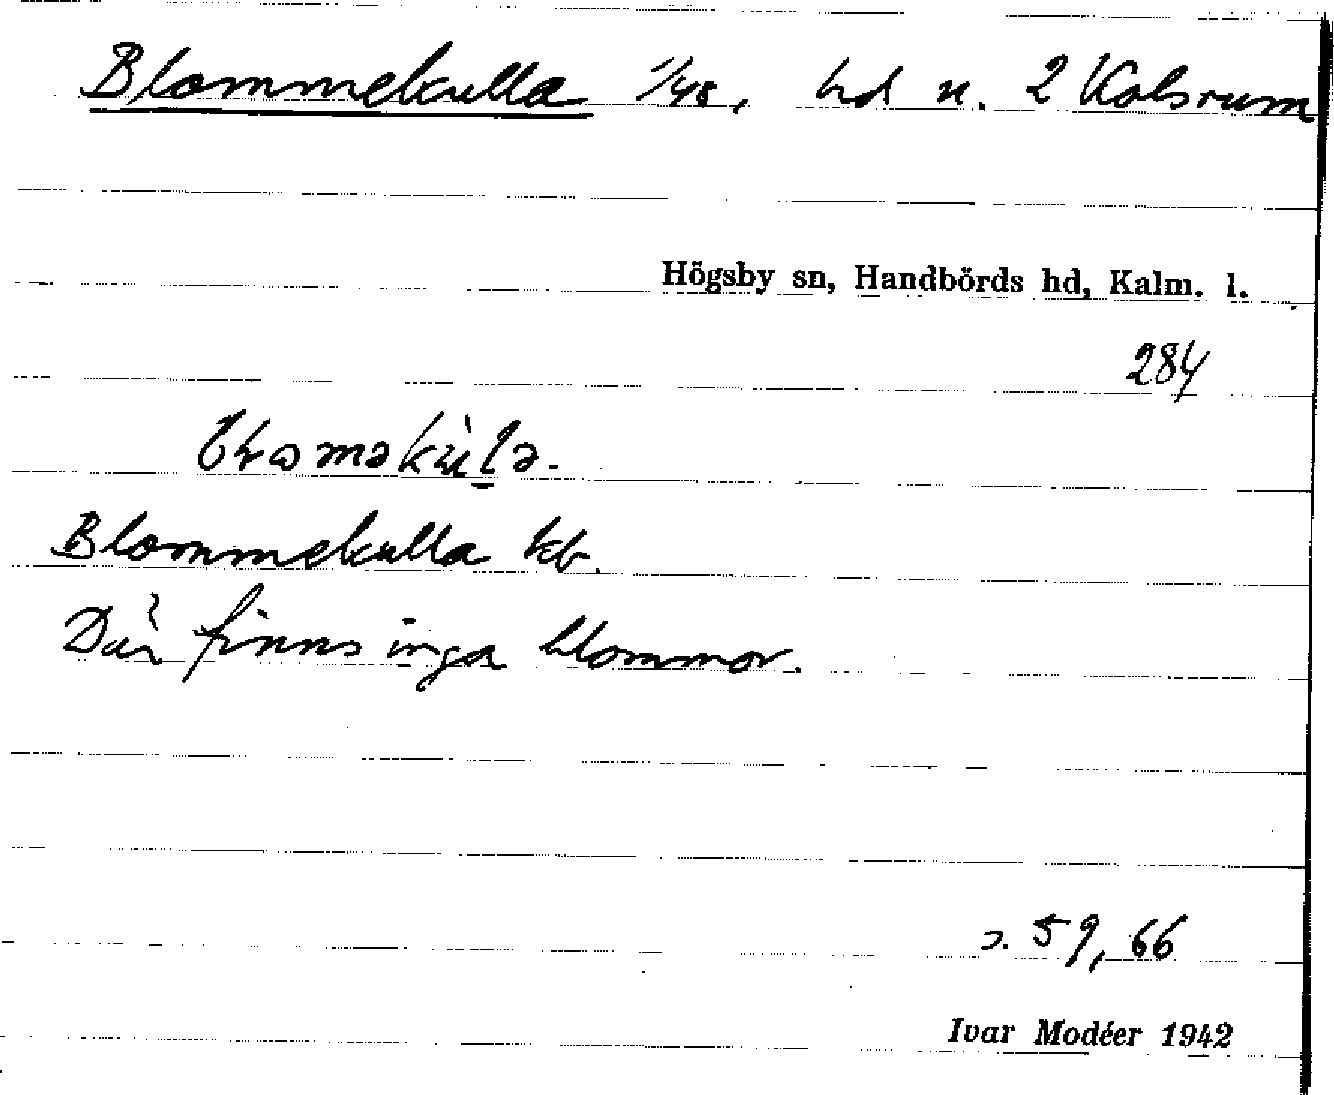 Blommekulla 1/48, hd n. 2 Kolsrum
Högsby sn, Handbörds hd, Kalm. l.
284
Blommekulla kb.
Där finns inga blommor.
s. 59, 66
Ivar Modéer 1942